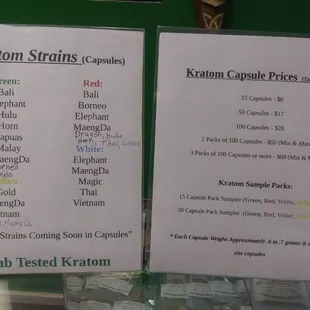 tom Strains (Capsules)
reen:
Red:
Bali
Bali
ephant
Borneo
Hulu
Elephant
Horn
MaengDa
apuas
Dragon, Hulu
Horn, Thai, Sunset
Malay
White:
aengDa
Elephant
orneo
MaengDa
ndo
ellow:
Magic
Gold
Thai
engDa
Vietnam
etnam
Strains Coming Soon in Capsules"
ab Tested Kratom
Kratom Capsule Prices
15 Capsules - $6
50 Capsules - $17
100 Capsules - $28
2 Packs of 100 Capsules - $50 (Mix & M
3 Packs of 100 Capsules or more - $69 (Mix & M
Kratom Sample Packs:
15 Capsule Pack Sampler (Green, Red, White,
50 Capsule Pack Sampler (Green, Red, White,
* Each Capsule Weighs Approximately .6 to .7 grams &
size capsules